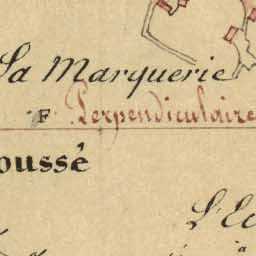 La Marquerie
F Perpendiculaire
oussé
L'Ec